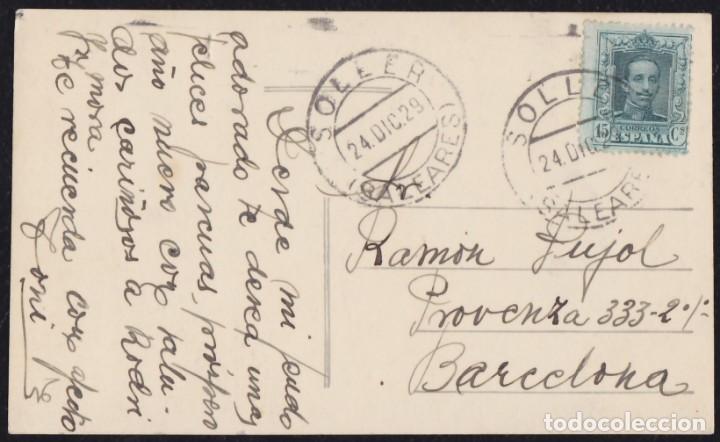 Desde mi feudo
adorado te desea unas
felices pascuas, próspero
año nuevo con salu-
dos cariñosos a Rodri
y Mora
te recuerda con afecto
Toni
SOLLER
24.DIC.29
(BALEARES)
SOLLER
24.DIC.
(BALEARES)
15 CORREOS Cs
ESPAÑA
Sr.
Ramón Pujol
Provenza 333-2º 1ª
Barcelona
todocoleccion.net